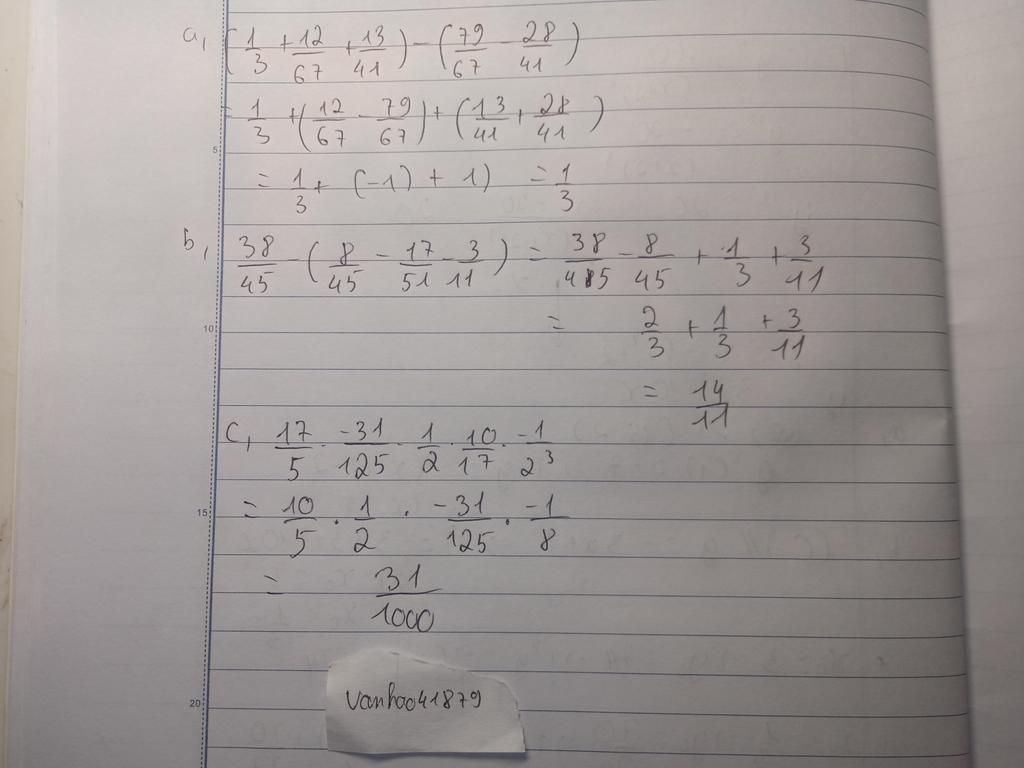 a, (1/3 + 12/67 + 13/41) - (79/67 - 28/41)
= 1/3 + (12/67 - 79/67) + (13/41 + 28/41)
= 1/3 + (-1) + 1) = 1/3
b, 38/45 - (8/45 - 17/51 - 3/11) = 38/45 - 8/45 + 1/3 + 3/11
= 2/3 + 1/3 + 3/11
= 14/11
c, 17/5 . -31/125 . 1/2 . 10/17 . -1/2³
= 10/5 . 1/2 . -31/125 . -1/8
= 31/1000
vanhoo41879
5
10
15
20